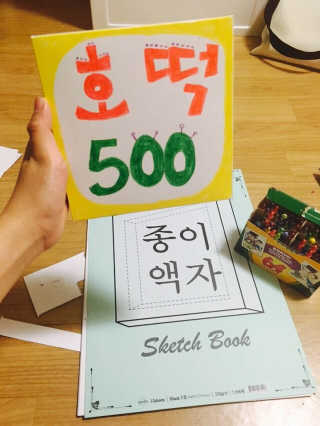 호떡
500
종이
액자
Sketch Book
64